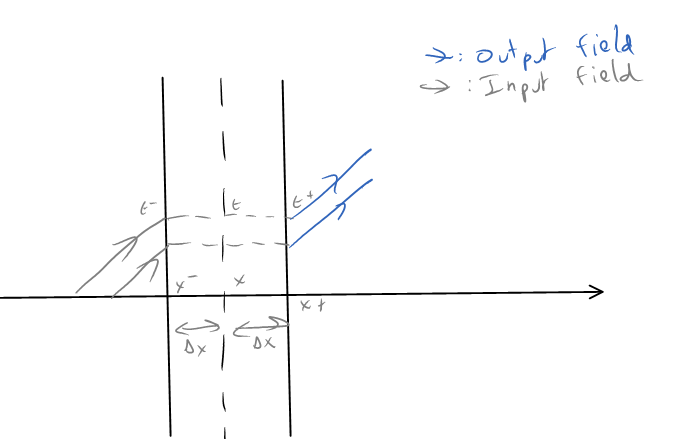 →: Output field
→: Input field
t⁻ t t⁺
x⁻ x x+
Δx Δx